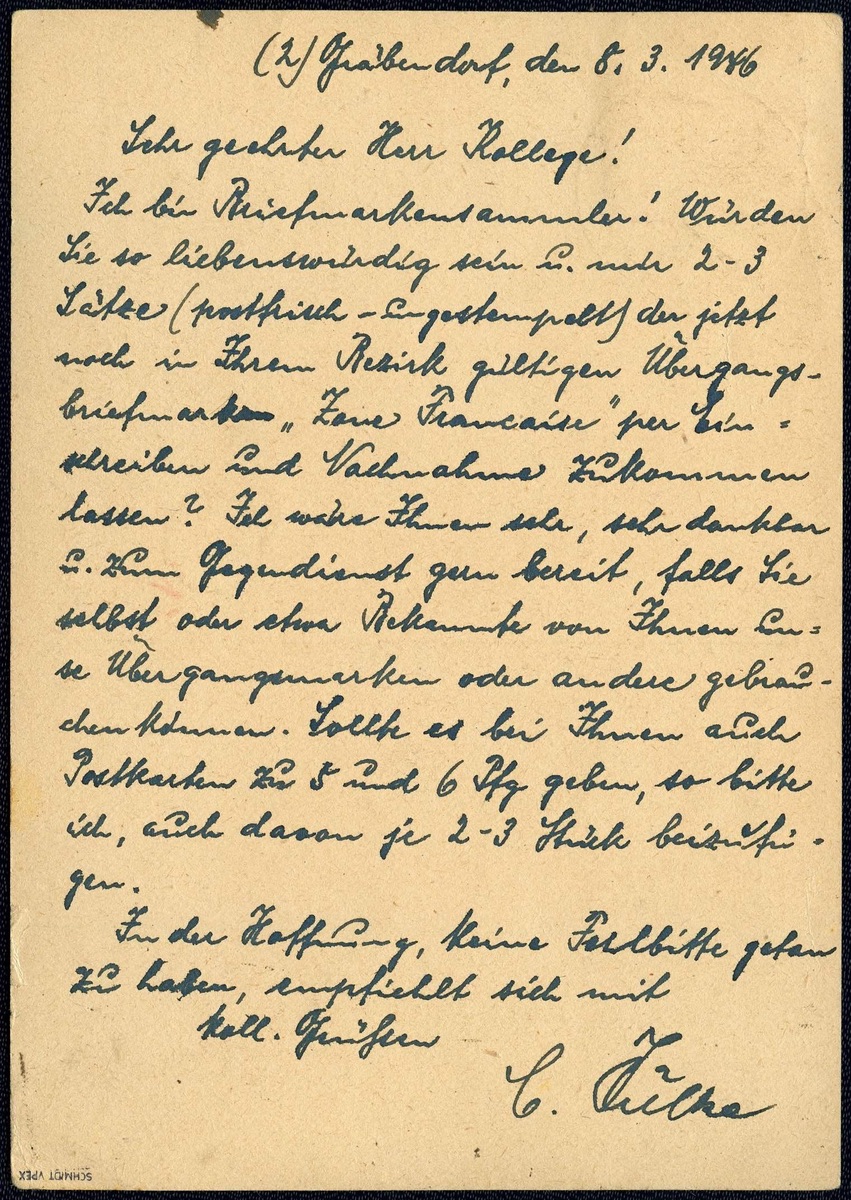 (2) Gräbendorf, den 8. 3. 1946
Sehr geehrter Herr Kollege!
Ich bin Briefmarkensammler! Würden
Sie so liebenswürdig sein u. mir 2-3
Sätze (postfrisch - ungestempelt) der jetzt
noch in Ihrem Bezirk gültigen Übergangs-
briefmarken „Zone Francaise" per Ein=
schreiben und Nachnahme zukommen
lassen? Ich wäre Ihnen sehr, sehr dankbar
u. zum Gegendienst gern bereit, falls Sie
selbst oder etwa Bekannte von Ihnen un=
se Übergangsmarken oder andere gebrau-
chen können. Sollte es bei Ihnen auch
Postkarten zu 5 und 6 Pfg geben, so bitte
ich, auch davon je 2-3 Stück beizufü-
gen.
In der Hoffnung, keine Fehlbitte getan
zu haben, empfiehlt sich mit
koll. Grüßen
C. Jülke
SCHMIDT VPEX